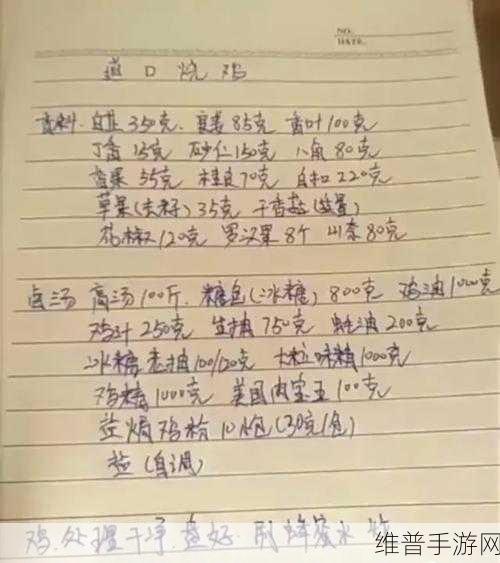 NO.
DATE.
道口烧鸡
香料.白芷350克.良姜85克 香叶100克
丁香15克 砂仁150克 八角80克
香果55克 桂皮70克 白扣220克
草果(去籽)35克 干香菇(适量)
花椒120克 罗汉果8个 山奈80克
卤汤 高汤100斤. 糖色(冰糖)800克 鸡油1000克
鸡汁250克 生抽750克 蚝油200克
冰糖老抽100/120克 大粒味精1000克
鸡精1000克 美国肉宝王100克
盐焗鸡粉10包(30克/包)
盐(自调)
鸡.处理干净.盘好.刷蜂蜜水
维普手游网